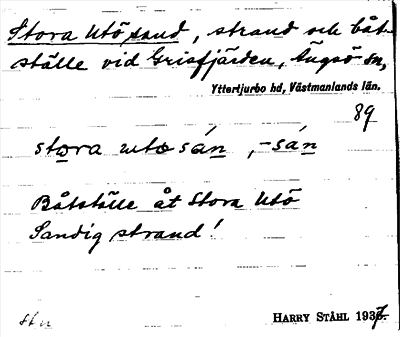 Stora Utö sand, strand och båt-
ställe vid Grisfjärden, Ängsö sn,
Yttertjurbo hd, Västmanlands län.
89
stora utosán, -sán
Båtställe åt Stora Utö
Sandig strand!
St u
HARRY STÅHL 1937.